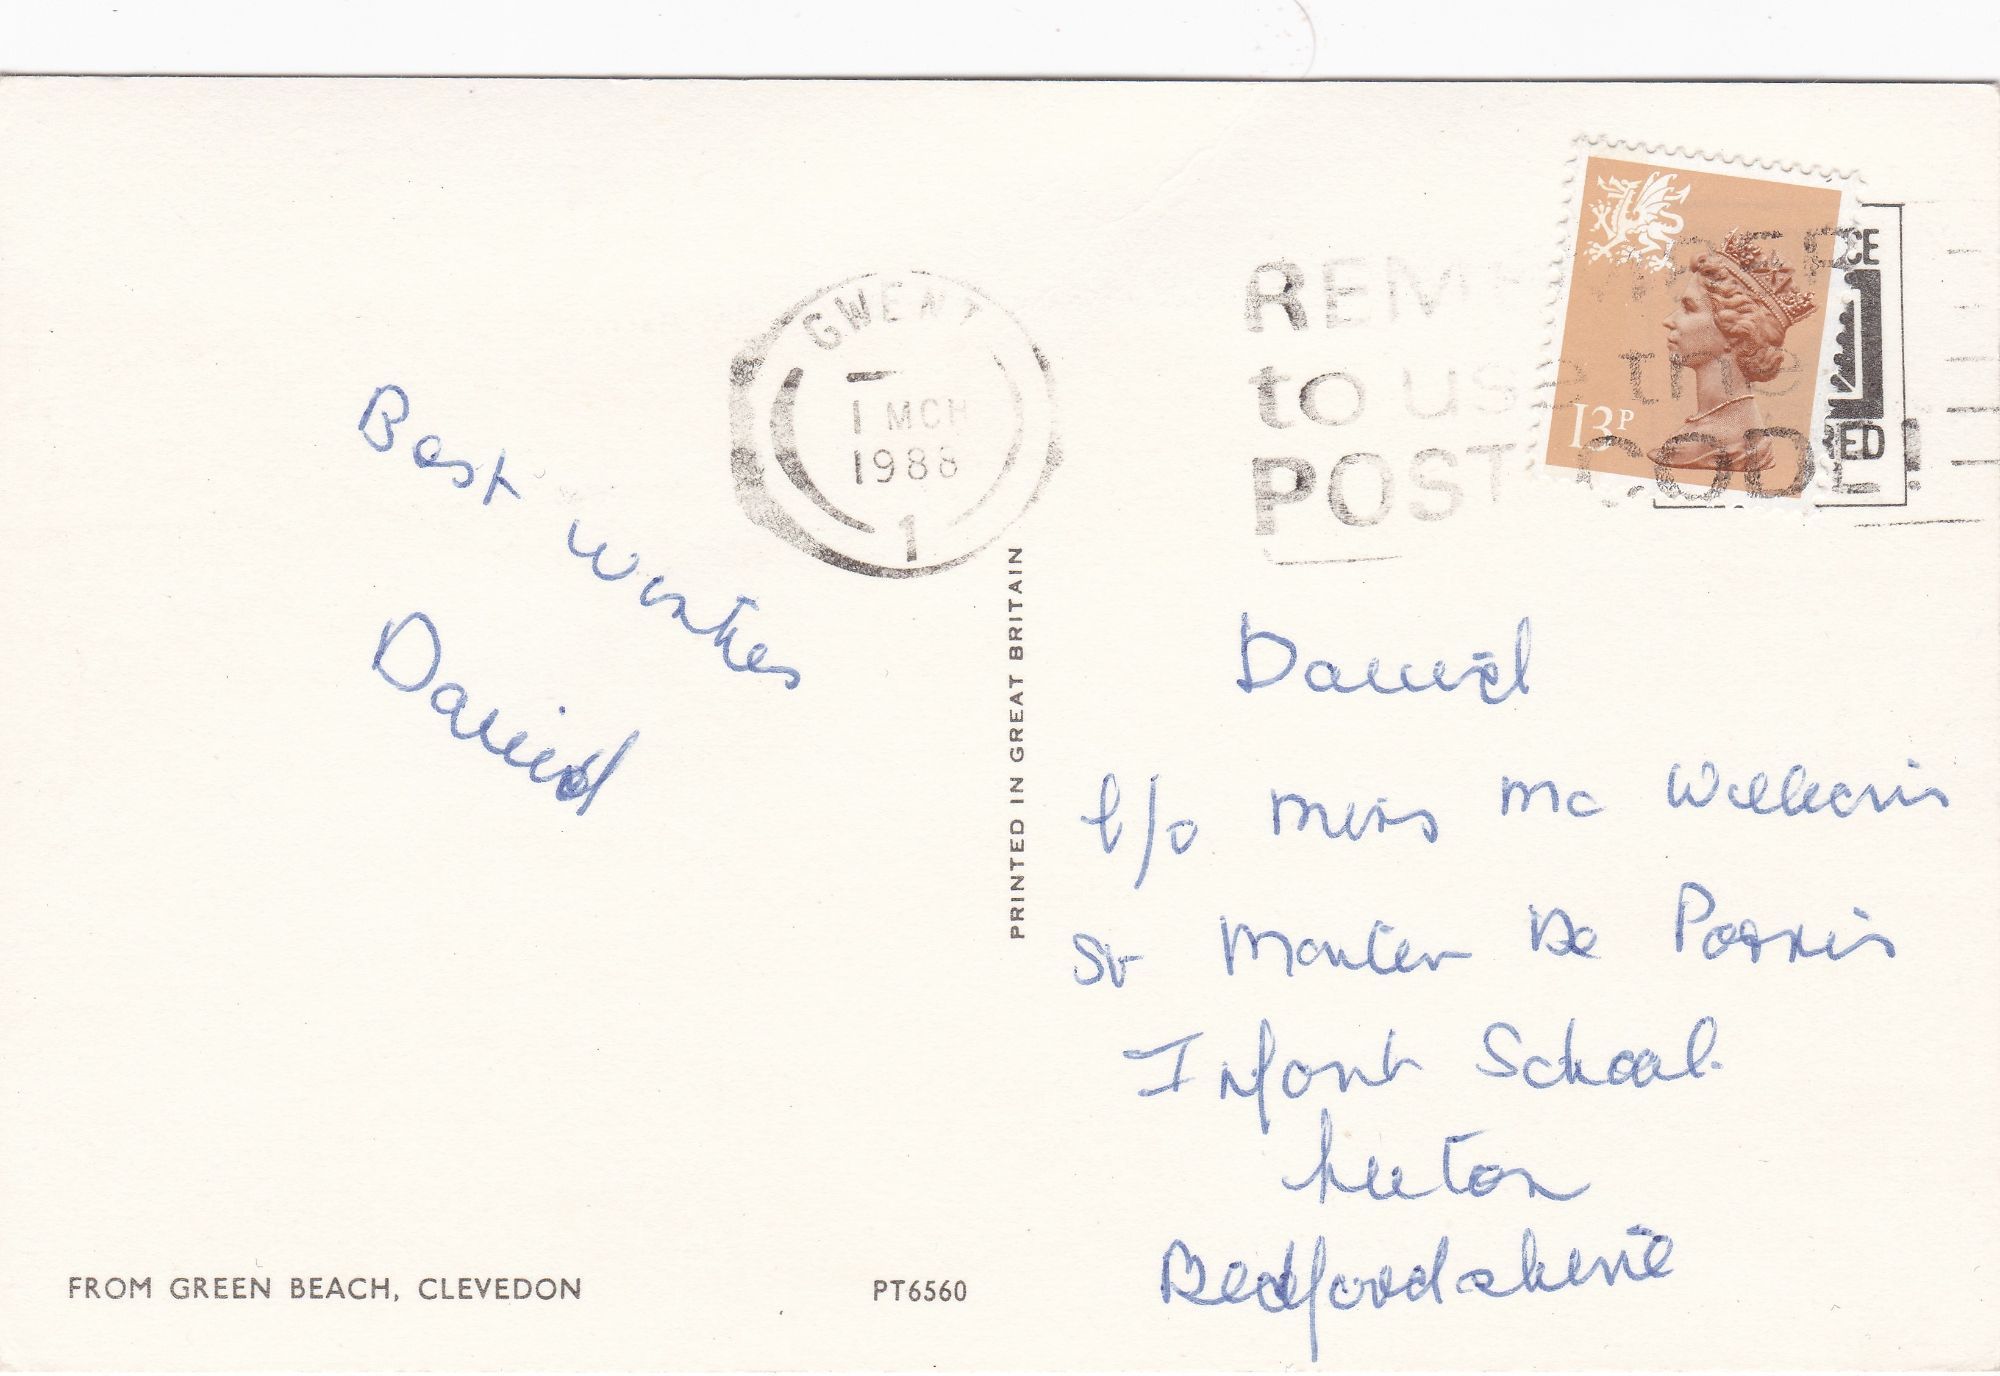 Best Wishes
David
FROM GREEN BEACH, CLEVEDON
PT6560
PRINTED IN GREAT BRITAIN
GWENT
1 MCH
1988
1
REMEMBER
to use the
POST CODE!
13P
CE
ED
Daniel
c/o Miss Mc Williams
St Martin De Porres
Infant School.
Luton
Bedfordshire